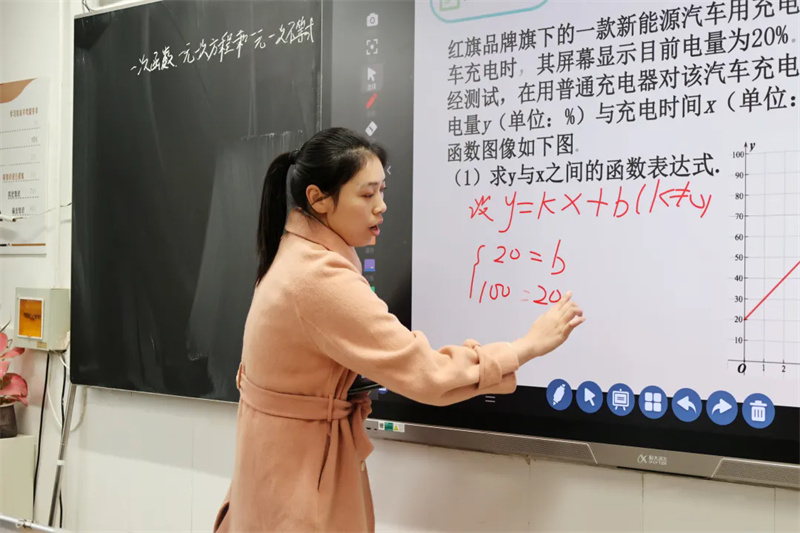 一次函数、一元一次方程和一元一次不等式
红旗品牌旗下的一款新能源汽车用充电
车充电时，其屏幕显示目前电量为20%.
经测试，在用普通充电器对该汽车充电
电量y（单位：%）与充电时间x（单位：
函数图像如下图.
（1）求y与x之间的函数表达式.
设 y=kx+b(k≠0)
20=b
100=20
y
100
90
80
70
60
50
40
30
20
10
O 1 2